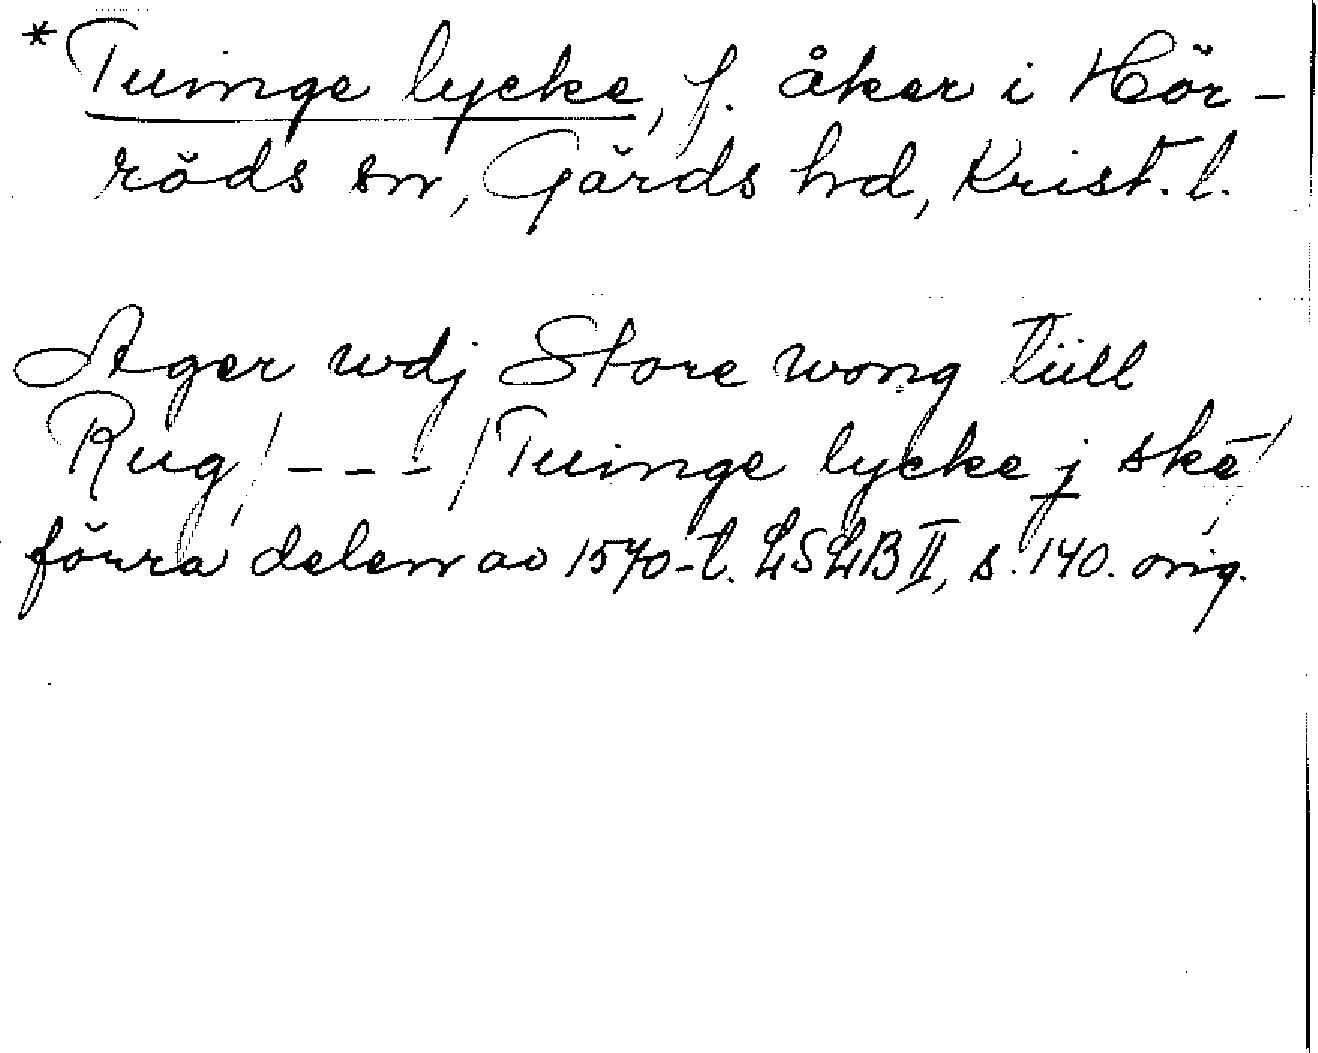 *Tuinge lycke, f. åker i Hör-
röds sn, Gärds hd, Krist. l.
Ager wdj Store wong tiill
Rug/---/Tuinge lycke j skē/
förra delen av 1570-t. LSLB II, s. 140. orig.